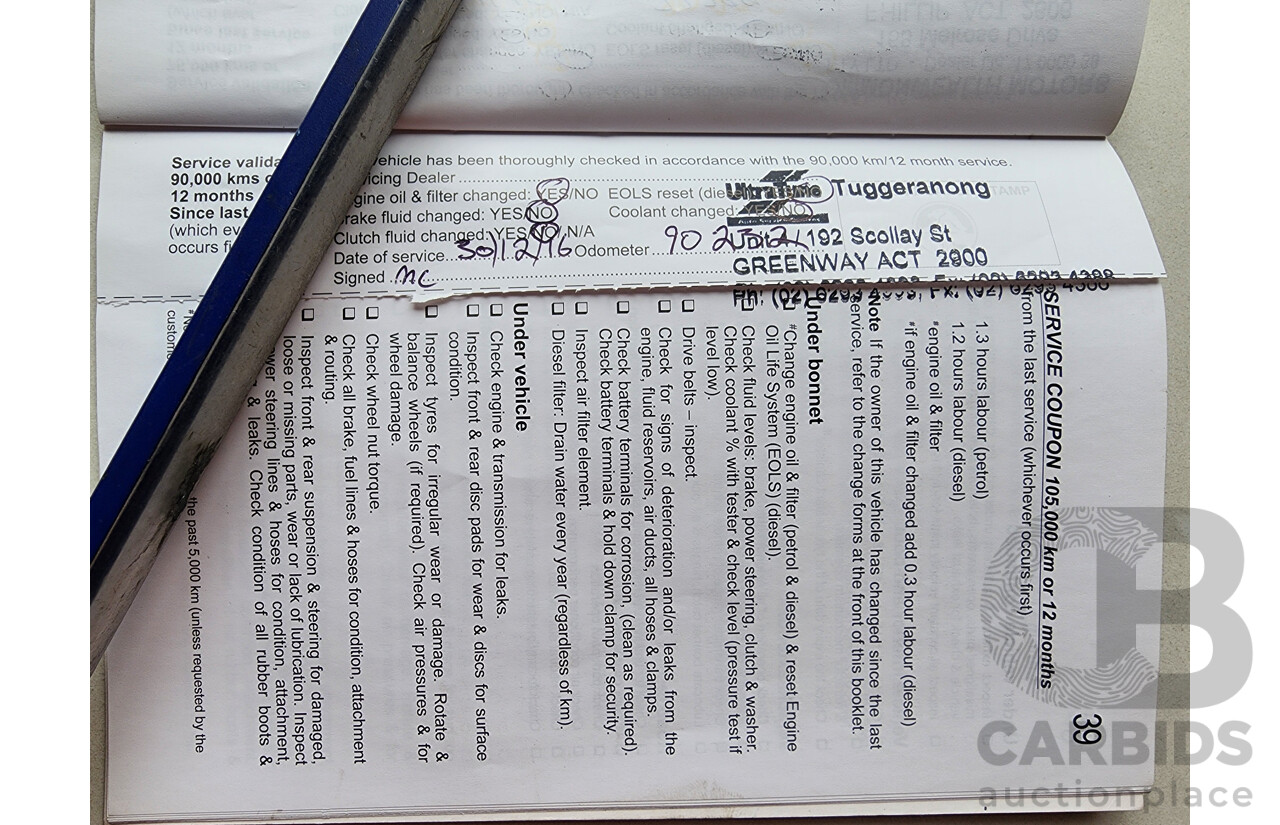 Service valida
90,000 kms
12 months
Since last
(which ev
occurs fi
ehicle has been thoroughly checked in accordance with the 90,000 km/12 month service.
icing Dealer
gine oil & filter changed: YES/NO EOLS reset (dies
rake fluid changed: YES/NO Coolant changed: YES/NO
Clutch fluid changed: YES/NO N/A
Date of service 30/12/16 Odometer 90 232
Signed MC
STAMP
UltraTune Tuggeranong
Unit 2/192 Scollay St
GREENWAY ACT 2900
Ph: (02) 6293
39
SERVICE COUPON 105,000 km or 12 months
from the last service (whichever occurs first)
1.3 hours labour (petrol)
1.2 hours labour (diesel)
*engine oil & filter
*if engine oil & filter changed add 0.3 hour labour (diesel)
Note If the owner of this vehicle has changed since the last
service, refer to the change forms at the front of this booklet.
Under bonnet
*Change engine oil & filter (petrol & diesel) & reset Engine
Oil Life System (EOLS) (diesel).
Check fluid levels: brake, power steering, clutch & washer.
Check coolant % with tester & check level (pressure test if
level low).
Drive belts – inspect.
Check for signs of deterioration and/or leaks from the
engine, fluid reservoirs, air ducts, all hoses & clamps.
Check battery terminals for corrosion, (clean as required).
Check battery terminals & hold down clamp for security.
Inspect air filter element.
Diesel filter: Drain water every year (regardless of km).
Under vehicle
Check engine & transmission for leaks.
Inspect front & rear disc pads for wear & discs for surface
condition.
Inspect tyres for irregular wear or damage. Rotate &
balance wheels (if required). Check air pressures & for
wheel damage.
Check wheel nut torque.
Check all brake, fuel lines & hoses for condition, attachment
& routing.
Inspect front & rear suspension & steering for damaged,
loose or missing parts, wear or lack of lubrication. Inspect
wer steering lines & hoses for condition, attachment,
& leaks. Check condition of all rubber boots &
the past 5,000 km (unless requested by the
custome
CARBIDS
auctionplace